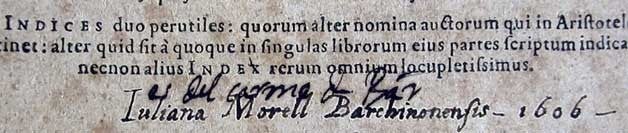 INDICES duo perutiles: quorum alter nomina auctorum qui in Aristotel
tinet: alter quid sit à quoque in singulas librorum eius partes scriptum indica
necnon alius INDEX rerum omnium locupletissimus.
es del carme de Bar
Iuliana Morell Barchinonensis - 1606 -